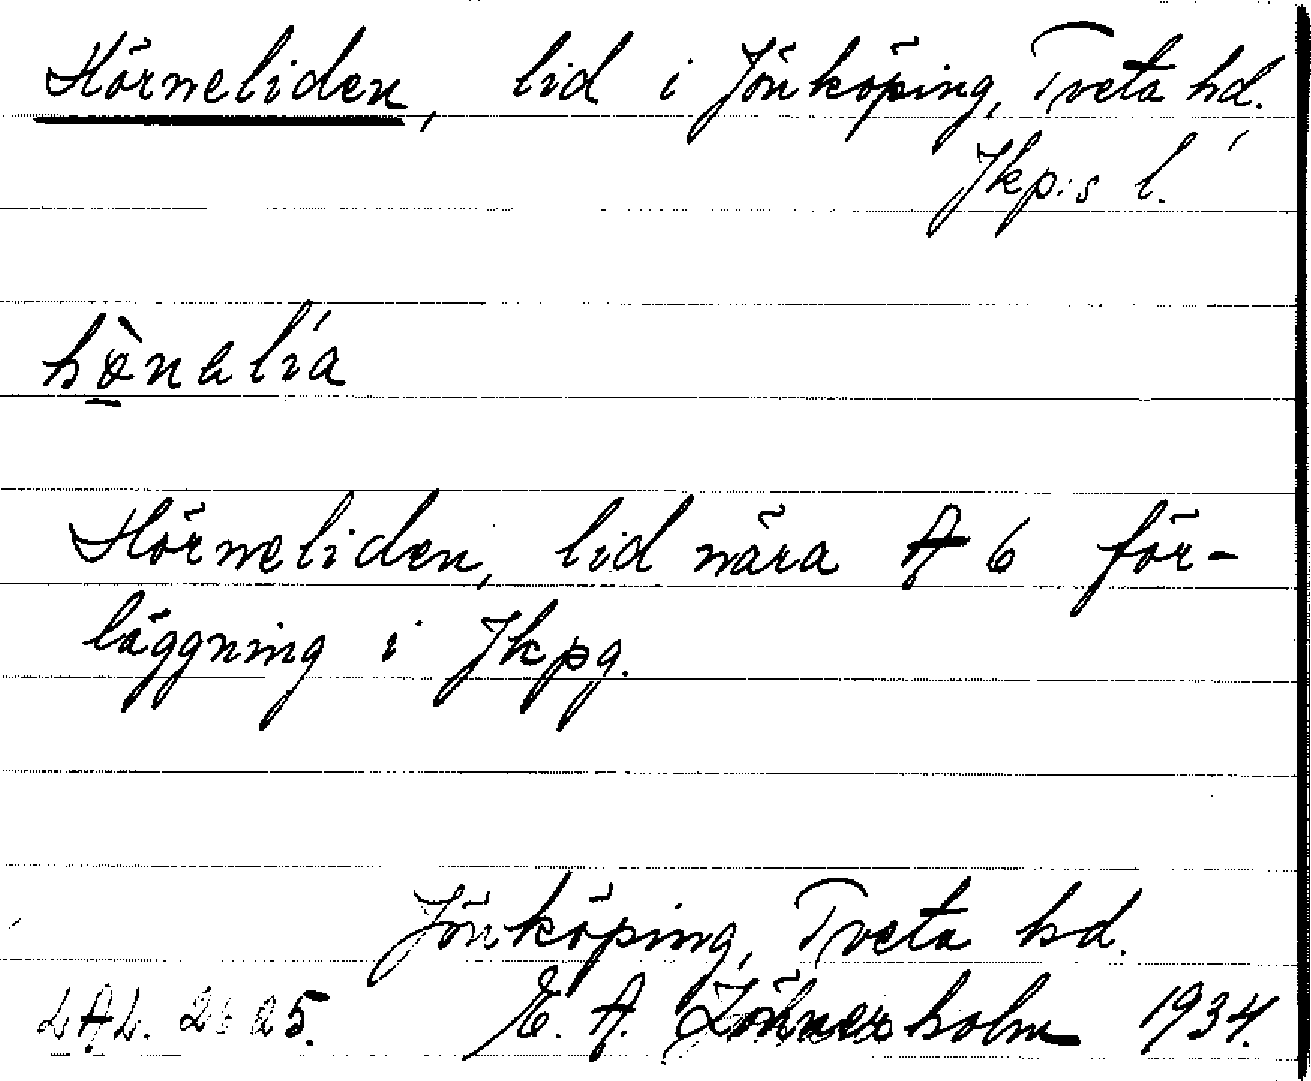 Hörneliden, lid i Jönköping, Tveta hd.
Jkp:s l.
hö̀nalía
Hörneliden, lid nära A 6 för-
läggning i Jkpg.
Jönköping, Tveta hd.
LAL. 2525. E. A. 1934.